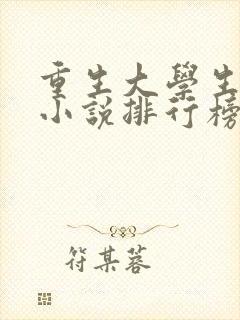 重生大學生
小說排行榜
符某蓉